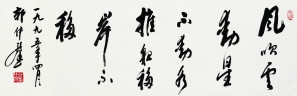 風吹雲
動星
不動水
推船移
岸不
移
一九九五年四月
郭仲選